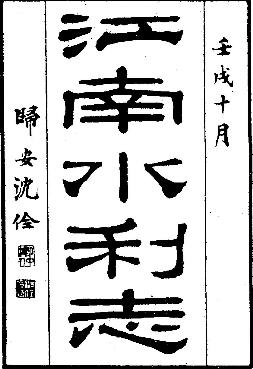 壬戌十月
江南水利志
歸安沈佺